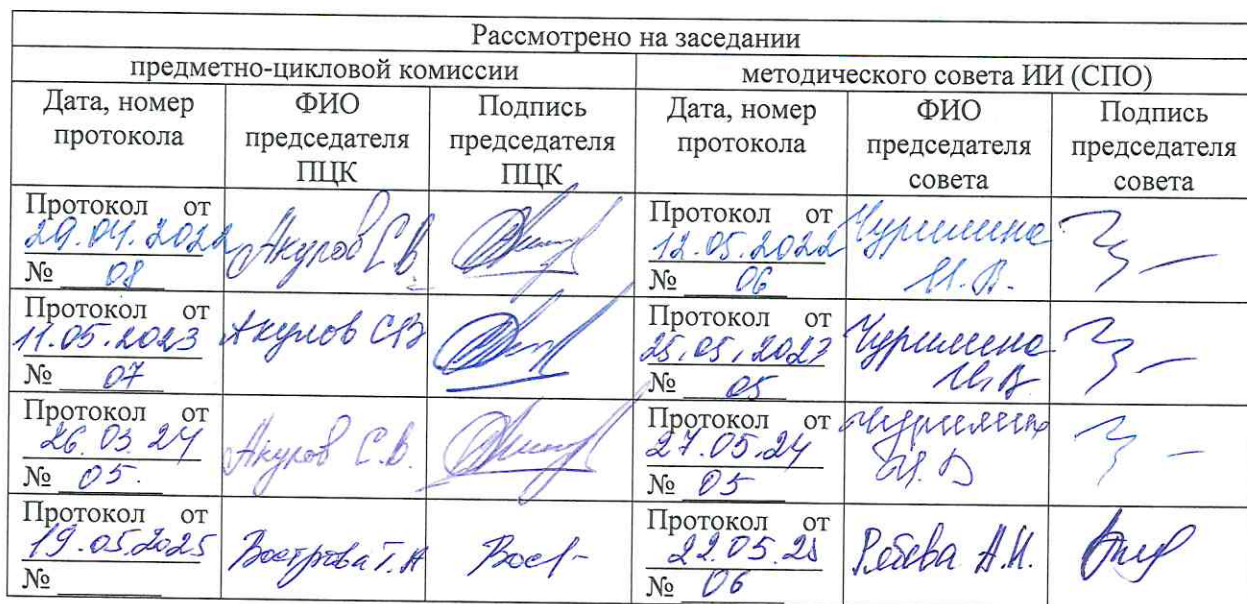 Рассмотрено на заседании
предметно-цикловой комиссии
методического совета ИИ (СПО)
Дата, номер
протокола
ФИО
председателя
ПЦК
Подпись
председателя
ПЦК
Дата, номер
протокола
ФИО
председателя
совета
Подпись
председателя
совета
Протокол от
29.04.2022
№ 08
Акулов С.В.
Протокол от
12.05.2022
№ 06
Чурилина
И.В.
Протокол от
11.05.2023
№ 07
Акулов СВ
Протокол от
25.05.2023
№ 05
Чурилина
И.В
Протокол от
26.03.24
№ 05.
Акулов С.В.
Протокол от
27.05.24
№ 05
Чурилина
И.В
Протокол от
19.05.2025
№
Вострова Т.А
Протокол от
22.05.25
№ 06
А.И.